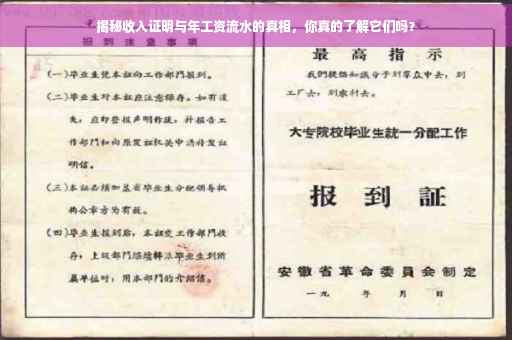 揭秘收入证明与年工资流水的真相，你真的了解它们吗?
报到注意事项
(一)毕业生凭本证向工作部门报到。
(二)毕业生对本证应注意保存。如有遗
失，应即登报声明作废，并报告工
作部门和向原发证机关申请补发证
明信。
(三)本证必须加盖省毕业生分配领导机
构公章方为有效。
(四)毕业生报到后，本证交工作部门收
存；上级部门
毕业生到所
属单位时，用本部门的介绍信。
最高指示
我们提倡知识分子到群众中去，到
工厂去，到农村去。
大专院校毕业生统一分配工作
报到证
安徽省革命委員会制定
一九 年 月 日